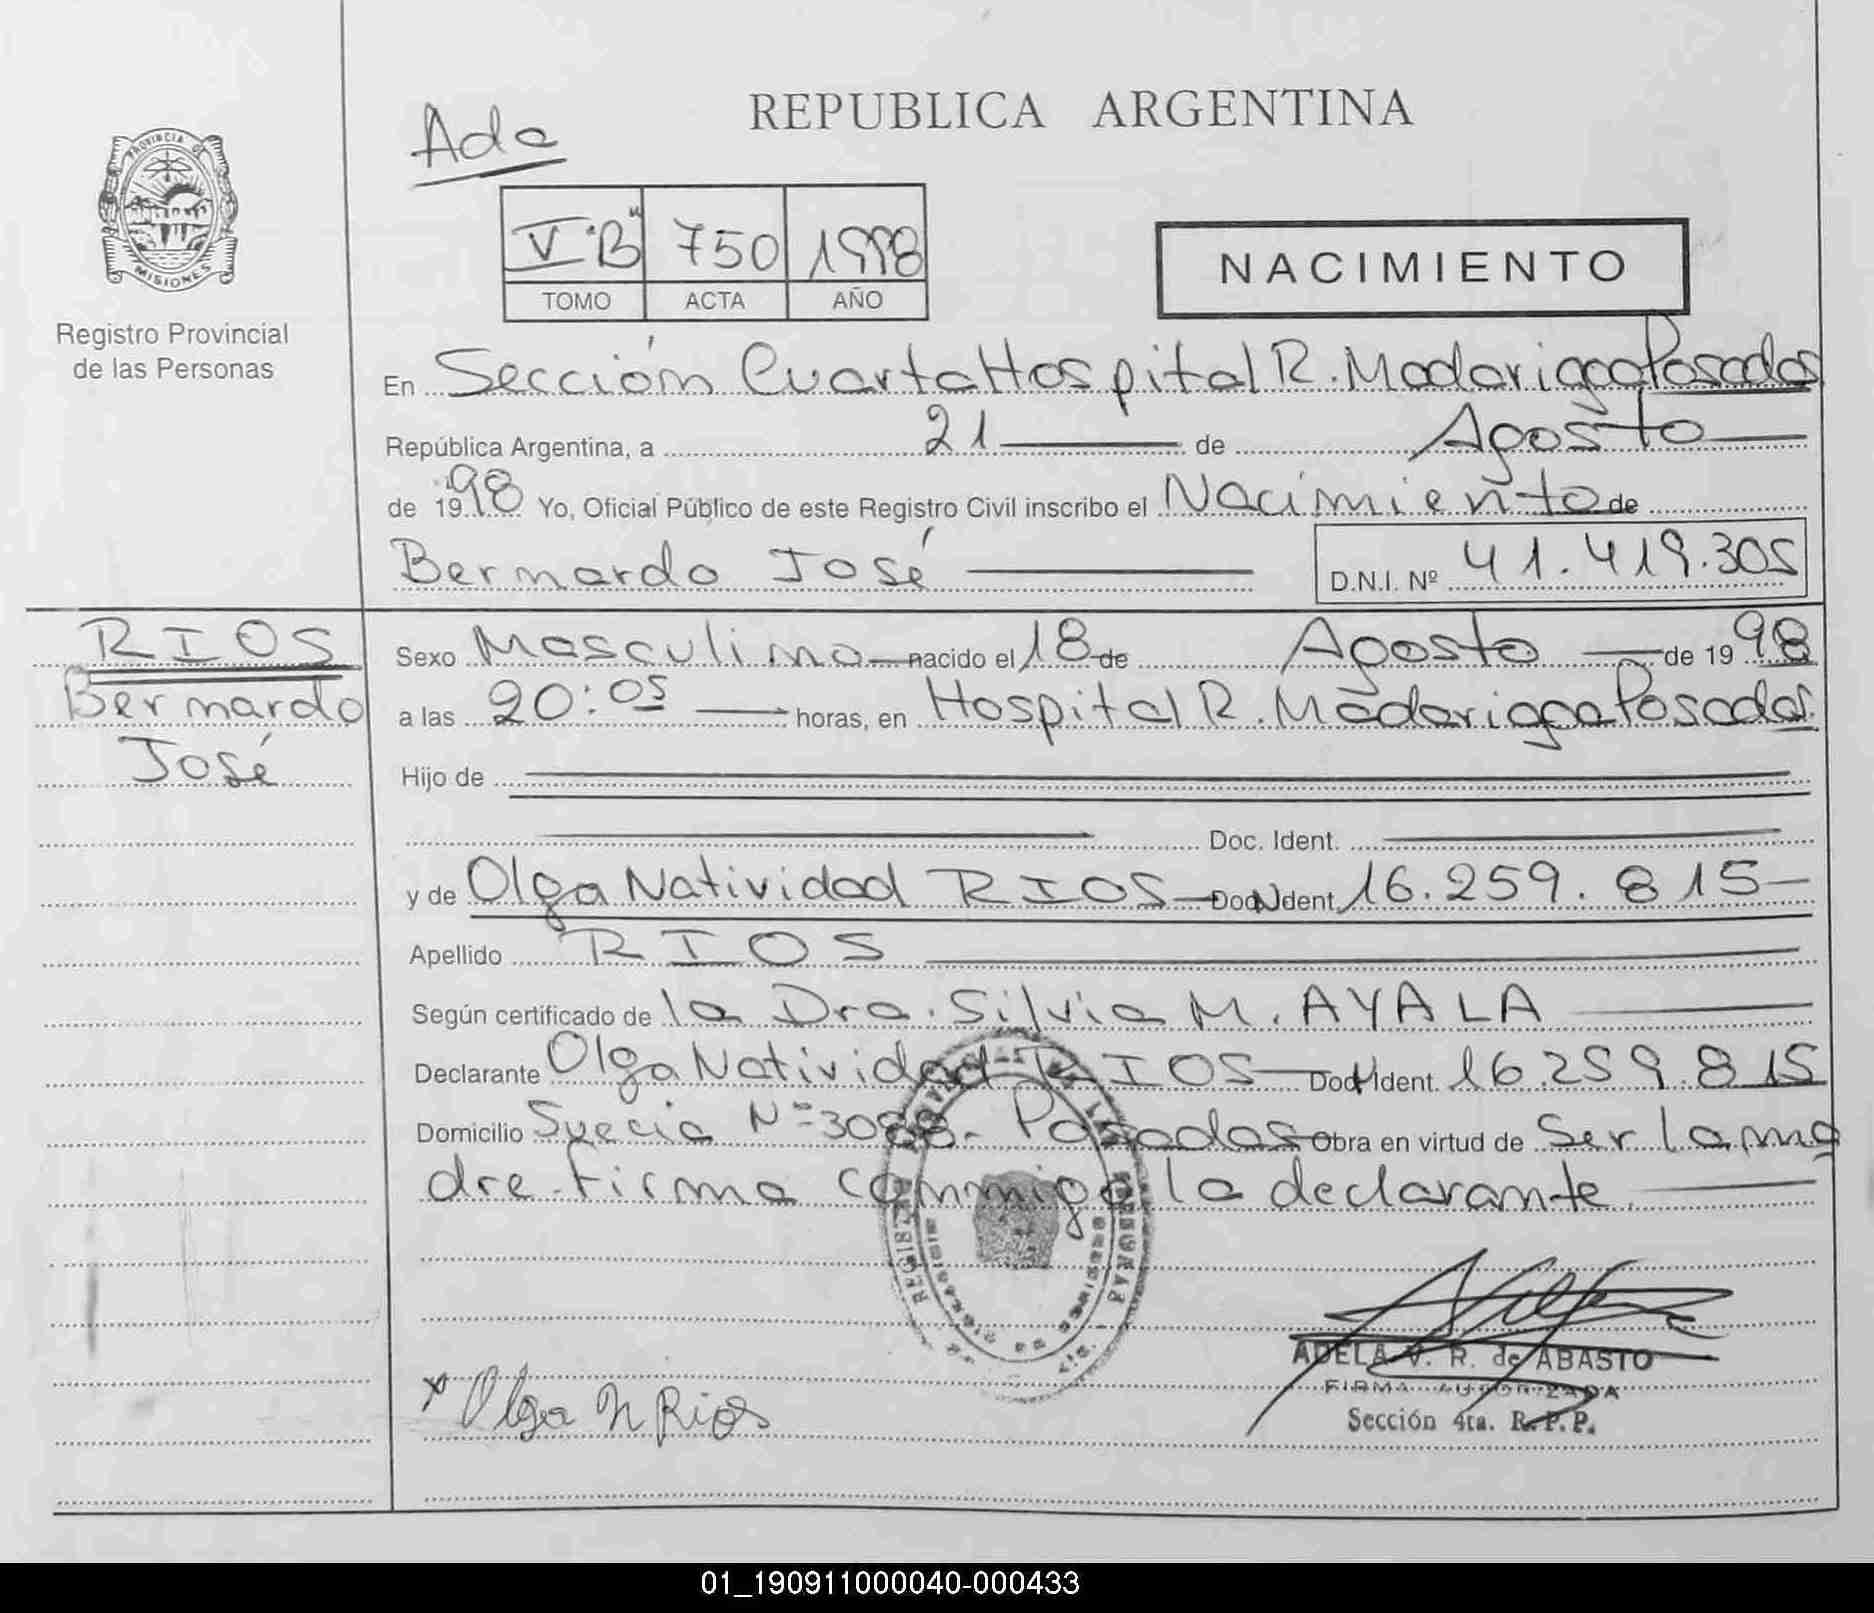 REPUBLICA ARGENTINA
Ada
PROVINCIA DE
MISIONES
Registro Provincial
de las Personas
V "B" 750 1998
TOMO ACTA AÑO
NACIMIENTO
En Sección Cuarta Hospital R. Madariaga Posadas
República Argentina, a 21 de Agosto
de 1998 Yo, Oficial Público de este Registro Civil inscribo el Nacimiento de
Bernardo José
D.N.I. Nº 41.419.305
RIOS
Bernardo
José
Sexo Masculino nacido el 18 de Agosto de 1998
a las 20:05 horas, en Hospital R. Madariaga Posadas
Hijo de
Doc. Ident.
y de Olga Natividad RIOS Doc. Ident. 16.259.815
Apellido RIOS
Según certificado de la Dra. Silvia M. AYALA
Declarante Olga Natividad RIOS Doc. Ident. 16.259.815
Domicilio Suecia Nº 3088- Posadas Obra en virtud de Ser la ma
dre. firma conmigo la declarante.
ADELA V. R. de ABASTO
FIRMA AUTORIZADA
Sección 4ta. R.P.P.
x Olga N Rios
01_190911000040-000433